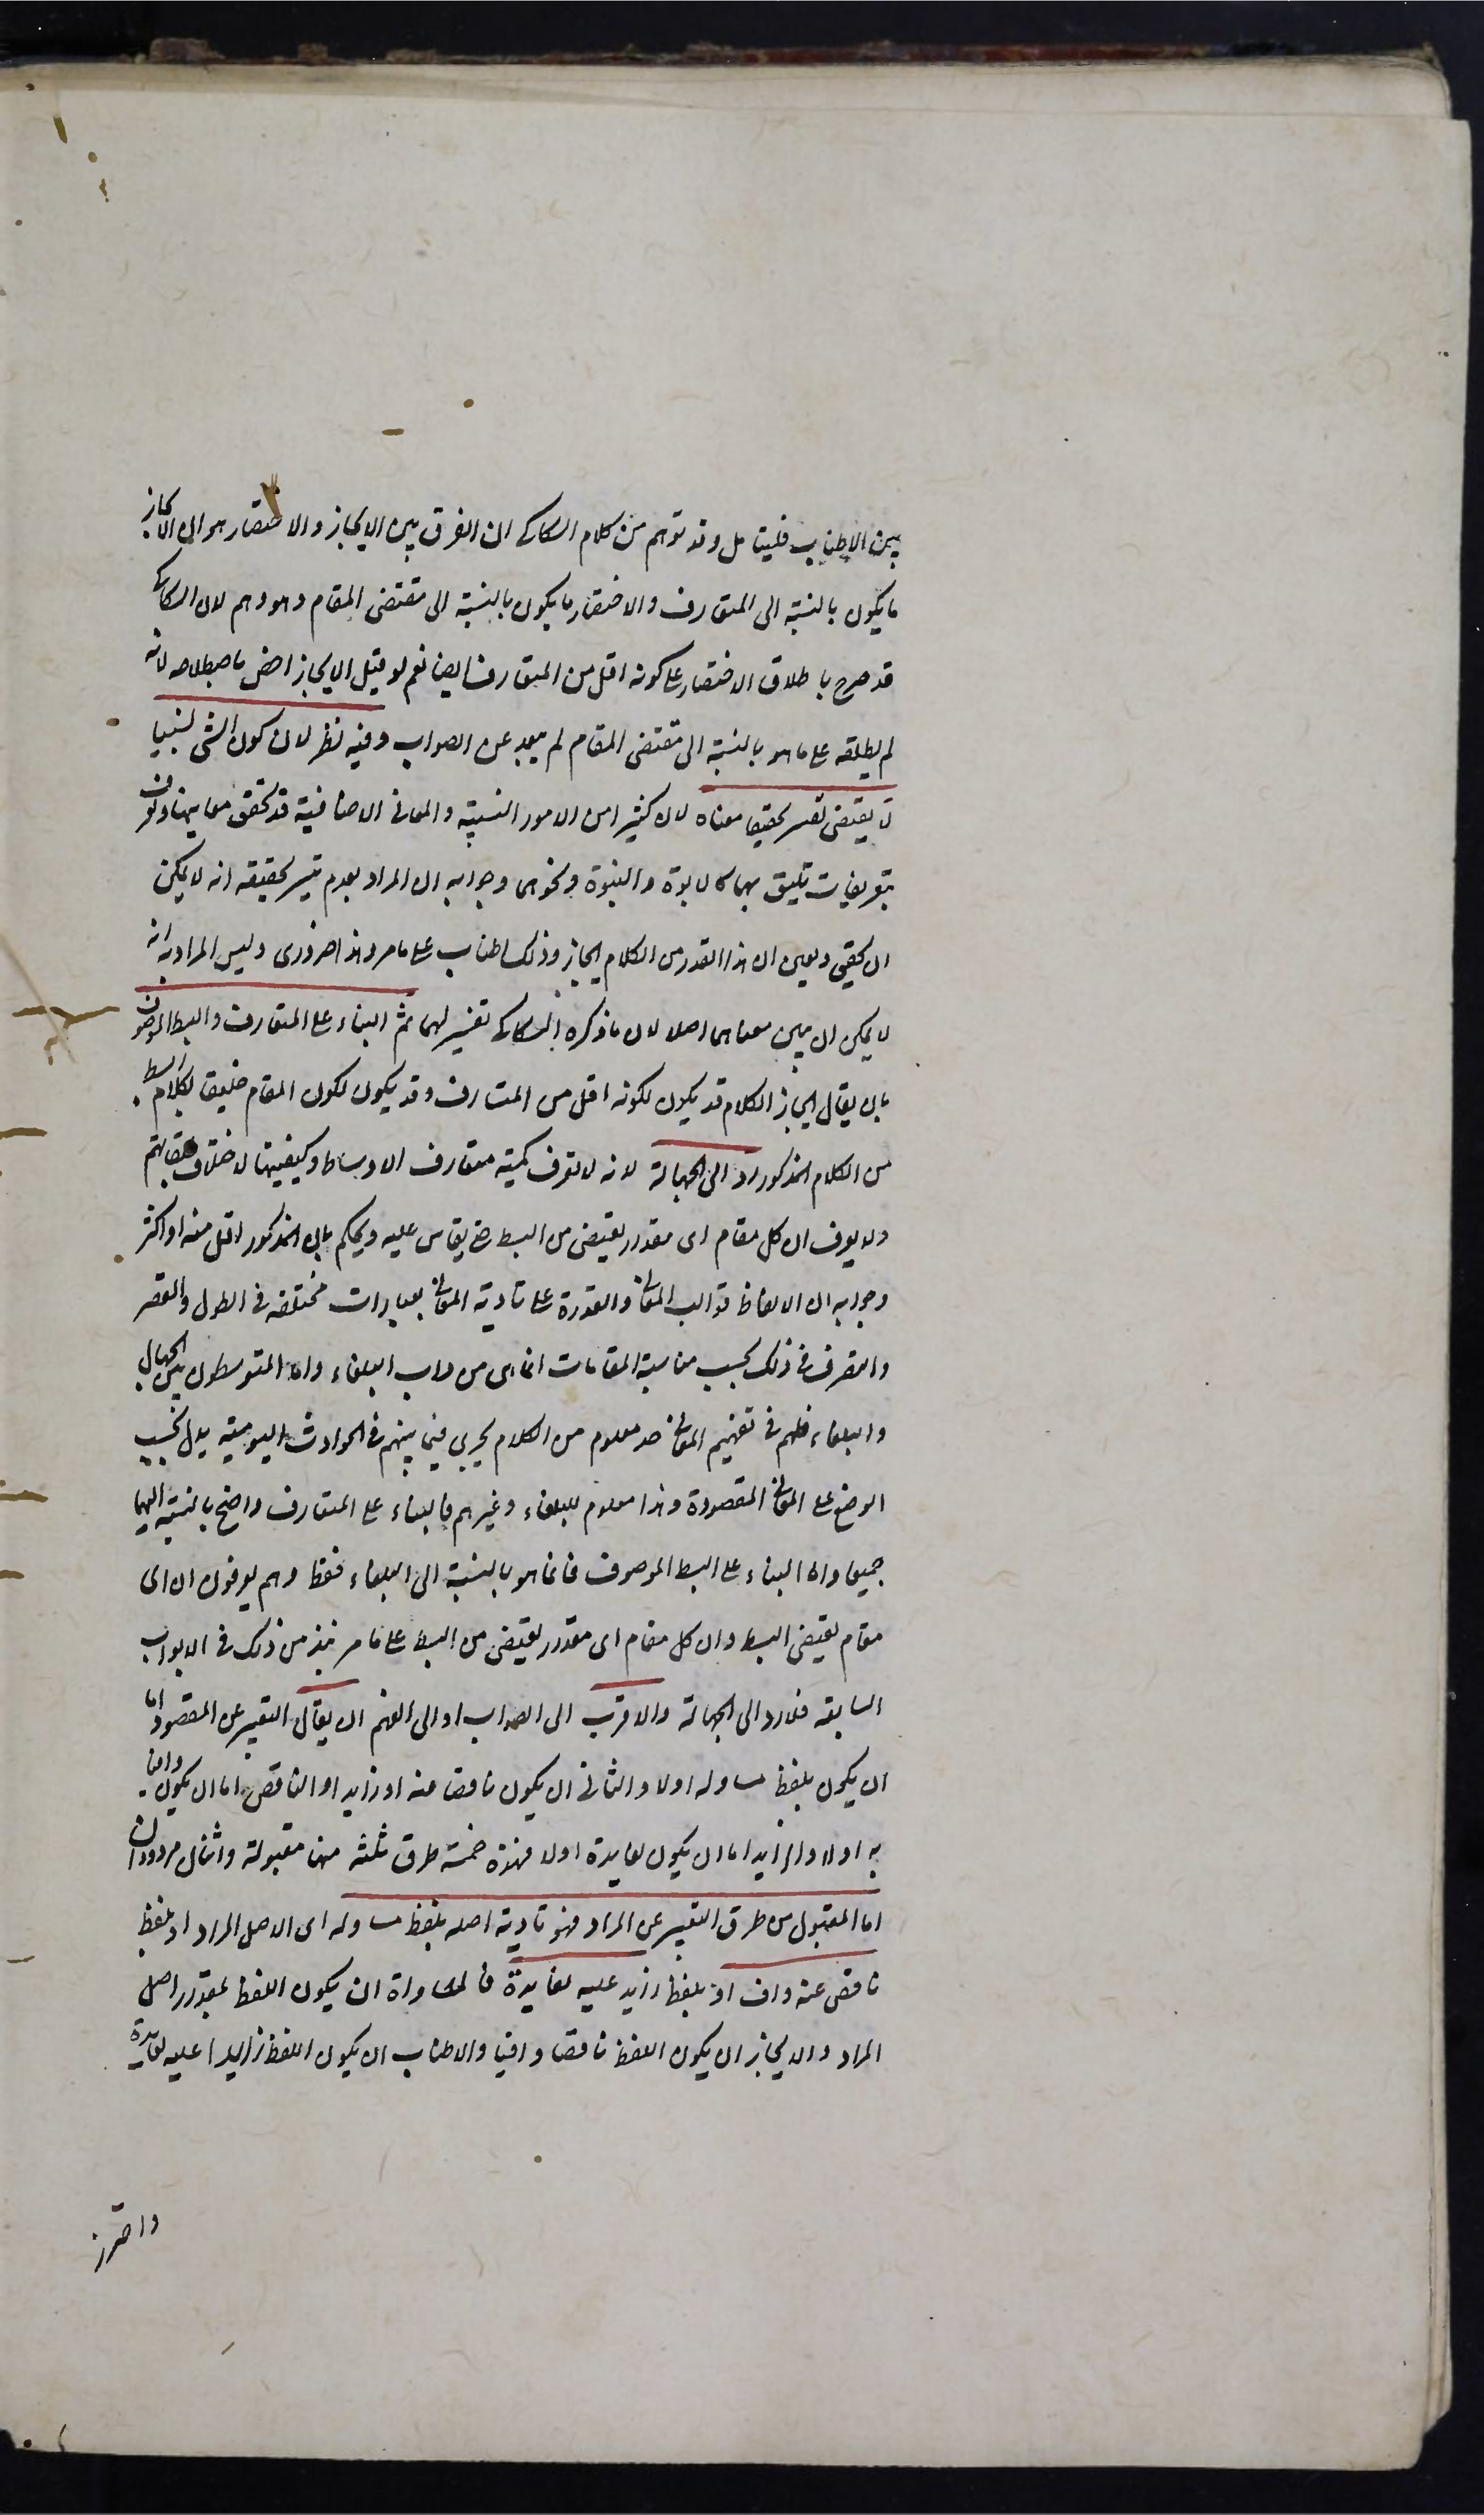 بين الاطناب فليتامل وقد توهم من كلام السكاكى ان الفرق بين الايجاز والاختصار هو ان الايجاز
ما يكون بالنسبة الى المتعارف والاختصار ما يكون بالنسبة الى مقتضى المقام وهو وهم لان السكاكى
قد صرح باطلاق الاختصار على كونه اقل من المتعارف ايضا نعم لو قيل الايجاز اخص باصطلاحه لانه
لم يطلقه على ما هو بالنسبة الى مقتضى المقام لم يبعد عن الصواب وفيه نظر لان كون الشى نسبيا
لا يقتضى تعسر تحقيق معناه لان كثيرا من الامور النسبية والمعانى الاضافية قد تحقق معانيها وتعرف
بتعريفات تليق بها كالابوة والبنوة ونحوهما وجوابه ان المراد بعدم تيسر تحقيقه انه لا يمكن
ان يحقق ويعين ان هذا القدر من الكلام ايجاز وذلك اطناب على ما مر وهذا ضرورى وليس المراد به انه
لا يمكن ان يبين معناهما اصلا لان ما ذكره السكاكى تفسير لهما ثم البناء على المتعارف والبسط الموصوف
بان يقال ايجاز الكلام قد يكون لكونه اقل من المتعارف وقد يكون لكون المقام خليقا بكلام ابسط
من الكلام المذكور رد الى الجهالة لانه لا تعرف كمية متعارف الاوساط وكيفيتها لاختلاف طبقاتهم
ولا يعرف ان كل مقام اى مقدار يقتضى من البسط حتى يقاس عليه ويحكم بان المذكور اقل منه او اكثر
وجوابه ان الالفاظ قوالب المعانى والقدرة على تادية المعانى بعبارات مختلفة فى الطول والقصر
والتصرف فى ذلك بحسب مناسبة المقامات انما هى من داب البلغاء واما المتوسطون بين الجهال
والبلغاء فلهم فى تفهيم المعانى حد معلوم من الكلام يجرى فيما بينهم فى الحوادث اليومية يدل بحسب
الوضع على المعانى المقصودة وهذا معلوم للبلغاء وغيرهم فالبناء على المتعارف واضح بالنسبة اليهما
جميعا واما البناء على البسط الموصوف فانما هو بالنسبة الى البلغاء فقط وهم يعرفون ان اى
مقام يقتضى البسط وان كل مقام اى مقدار يقتضى من البسط على ما مر نبذ من ذلك فى الابواب
السابقة فلا رد الى الجهالة والاقرب الى الصواب او الى الفهم ان يقال التعبير عن المقصود اما
ان يكون بلفظ مساو له او لا والثانى ان يكون ناقصا عنه او زايد او الناقص اما ان يكون وافيا
به او لا والزايد اما ان يكون لفايدة او لا فهذه خمسة طرق ثلثة منها مقبولة واثنان مردودان
اما المقبول من طرق التعبير عن المراد فهو تادية اصله بلفظ مساو له اى الاصل المراد او بلفظ
ناقص عنه واف او بلفظ زايد عليه لفايدة فالمساواة ان يكون اللفظ بمقدار اصل
المراد والايجاز ان يكون اللفظ ناقصا وافيا والاطناب ان يكون اللفظ زايدا عليه لفايدة
واحترز